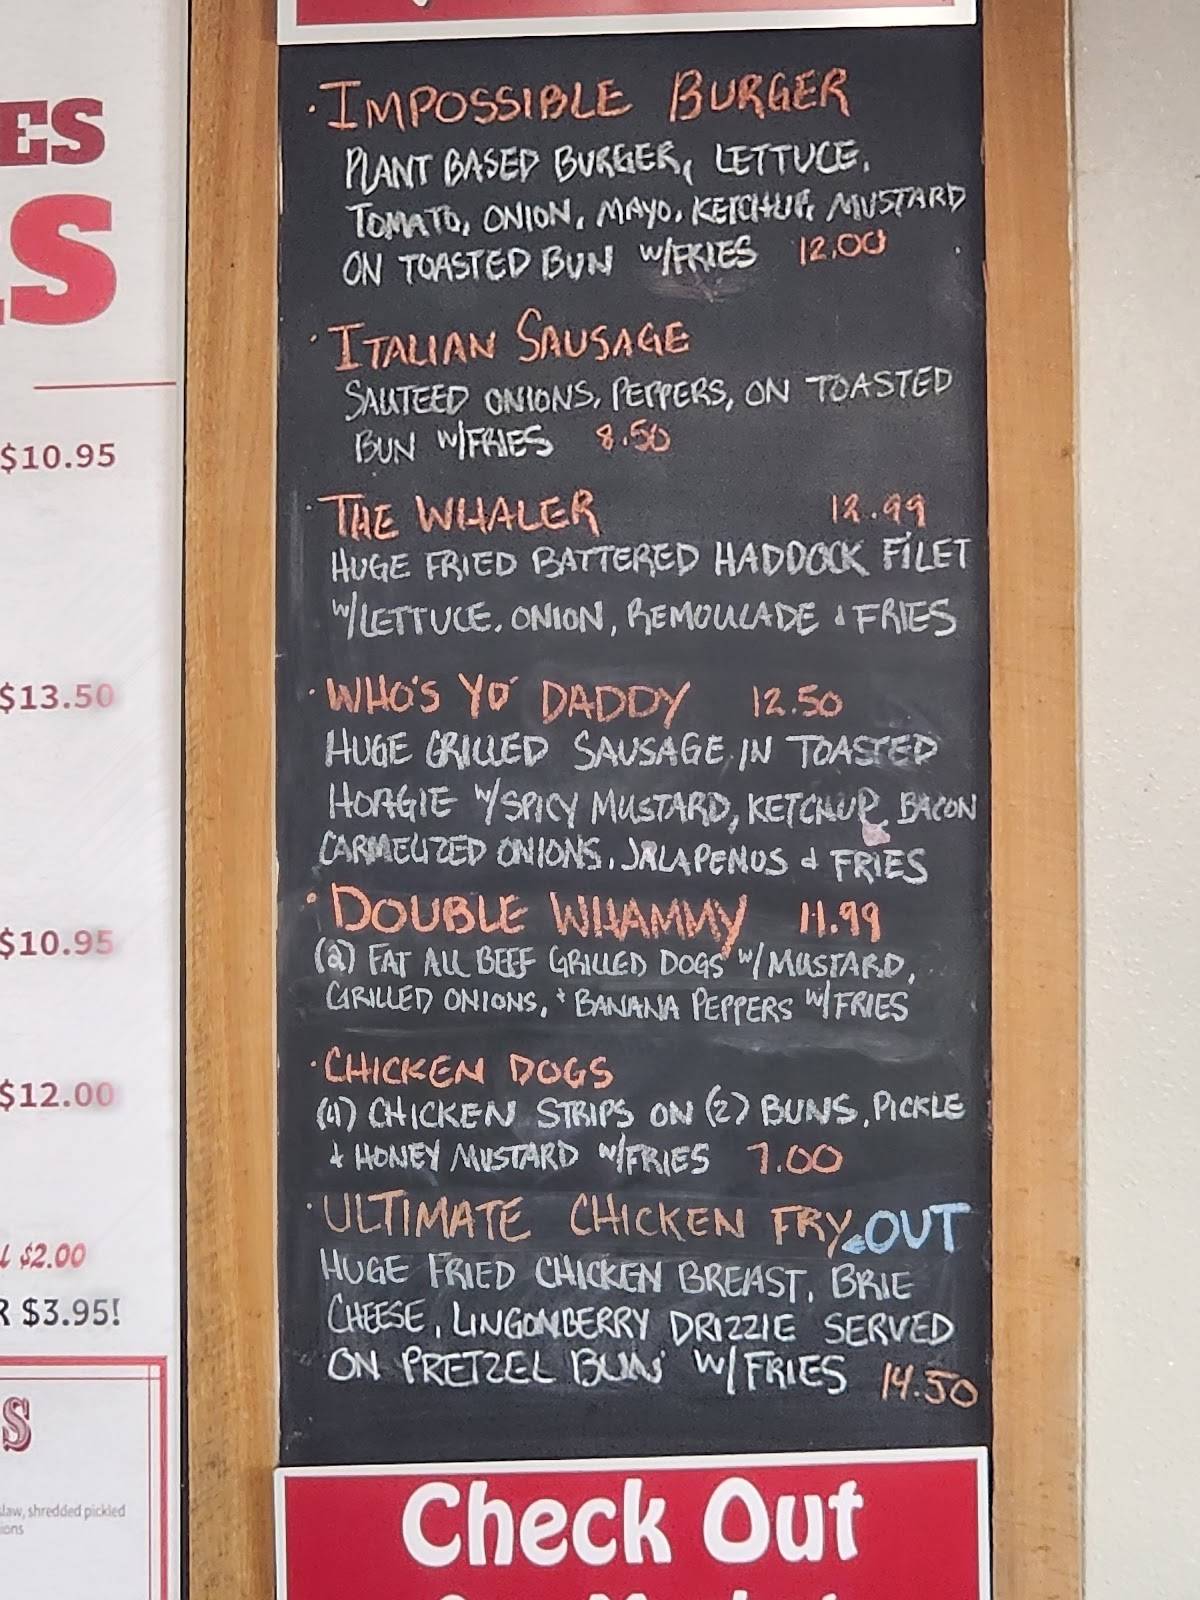 ES
S
$10.95
$13.50
$10.95
$12.00
$2.00
R $3.95!
S
slaw, shredded pickled
ions
· IMPOSSIBLE BURGER
PLANT BASED BURGER, LETTUCE,
TOMATO, ONION, MAYO, KETCHUP, MUSTARD
ON TOASTED BUN W/FRIES 12.00
· ITALIAN SAUSAGE
SAUTEED ONIONS, PEPPERS, ON TOASTED
BUN W/FRIES 8.50
· THE WHALER 12.99
HUGE FRIED BATTERED HADDOCK FILET
W/LETTUCE, ONION, REMOULADE & FRIES
· WHO'S YO' DADDY 12.50
HUGE GRILLED SAUSAGE IN TOASTED
HOAGIE W/SPICY MUSTARD, KETCHUP, BACON
CARMELIZED ONIONS, JALAPENOS & FRIES
· DOUBLE WHAMMY 11.99
(2) FAT ALL BEEF GRILLED DOGS W/MUSTARD,
GRILLED ONIONS, & BANANA PEPPERS W/FRIES
· CHICKEN DOGS
(4) CHICKEN STRIPS ON (2) BUNS, PICKLE
& HONEY MUSTARD W/FRIES 7.00
· ULTIMATE CHICKEN FRY-OUT
HUGE FRIED CHICKEN BREAST, BRIE
CHEESE, LINGONBERRY DRIZZLE SERVED
ON PRETZEL BUN W/FRIES 14.50
Check Out